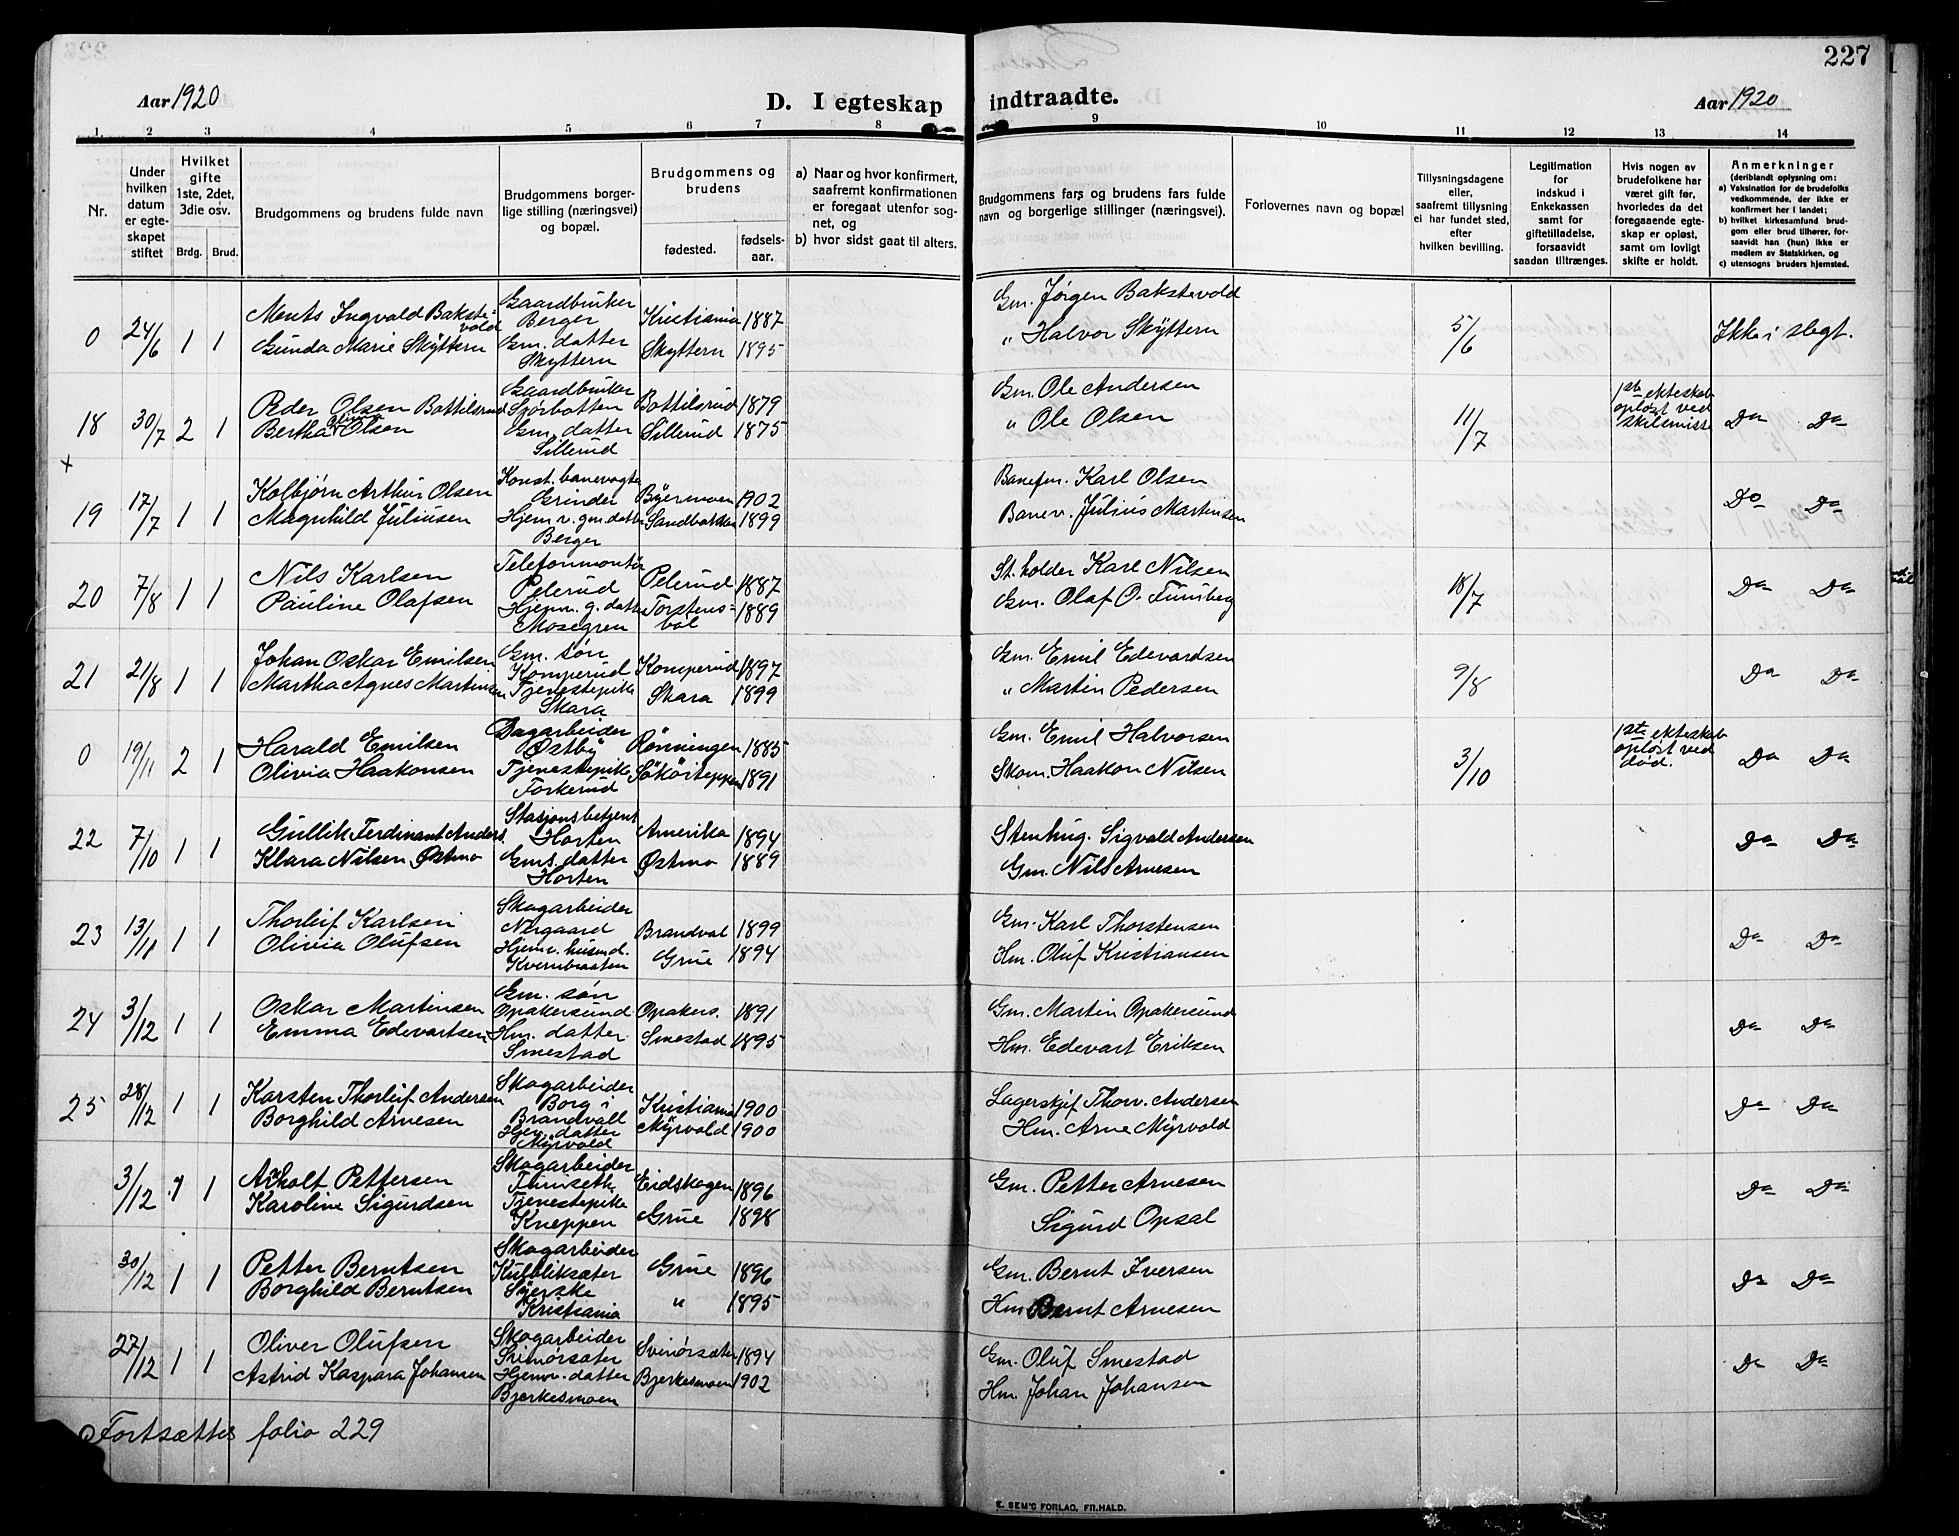 227
Aar 1920
D. I egteskap indtraadte.
Aar 1920
1. 2 3 4 5 6 7 8 9 10 11 12 13 14
Nr.
Under hvilken datum er egteskapet stiftet
Hvilket gifte 1ste, 2det, 3die osv.
Brdg. Brud.
Brudgommens og brudens fulde navn
Brudgommens borgerlige stilling (næringsvei) og bopæl.
Brudgommens og brudens
fødested.
fødselsaar.
a) Naar og hvor konfirmert, saafremt konfirmationen er foregaat utenfor sognet, og
b) hvor sidst gaat til alters.
Brudgommens fars og brudens fars fulde navn og borgerlige stillinger (næringsvei).
Forlovernes navn og bopæl
Tillysningsdagene eller, saafremt tillysning ei har fundet sted, efter hvilken bevilling.
Legitimation for indskud i Enkekassen samt for giftetilladelse, forsaavidt saadan tiltrænges.
Hvis nogen av brudefolkene har været gift før, hvorledes da det foregaaende egteskap er opløst, samt om lovligt skifte er holdt.
Anmerkninger (deriblandt oplysning om: a) Vaksination for de brudefolks vedkommende, der ikke er konfirmert her i landet; b) hvilket kirkesamfund brudgom eller brud tilhører, forsaavidt han (hun) ikke er medlem av Statskirken, og c) utensogns bruders hjemsted.
0 24/6 1 1 Ments Ingvald Bakstevold Gaardbruker Berger Kristiania 1887 Gm. Jørgen Bakstevold 5/6 Ikke i slegt.
Gunda Marie Skyttern Gm. datter Skyttern Skyttern 1895 " Halvor Skyttern
18 30/7 2 1 Peder Olsen Bottilsrud Gaardbruker Sjørbotten Bottilsrud 1879 Gm. Ole Andersen 11/7 1ste ekteskab opløst ved skilsmisse Do Do
Bertha Olsen Gm. datter Sillerud Sillerud 1875 " Ole Olsen
x
19 17/7 1 1 Kolbjørn Arthur Olsen Konst. banevogter Grinder Byermoen 1902 Banefm. Karl Olsen Do Do
Magnhild Juliusen Hjem. v. gm. datter Berger Sandbakken 1899 Banev. Julius Martinsen
20 7/8 1 1 Nils Karlsen Telefonmontør Pelerud Pelerud 1887 St. holder Karl Nilsen 18/7 Do Do
Pauline Olafsen Hjemv. g. datter Mosegren Torstensbøl 1889 Gm. Olaf O. Funsberg
21 21/8 1 1 Johan Oskar Emilsen Gm. søn Komperud Komperud 1897 Gm. Emil Edevardsen 9/8 Do Do
Martha Agnes Martinsen Tjenestepike Skara Skara 1899 " Martin Pedersen
0 19/11 2 1 Harald Emilsen Dagarbeider Østby Rønningen 1885 Gm. Emil Halvorsen 3/10 1ste ekteskab opløst ved død. Do Do
Olivia Haakonsen Tjenestepike Torkerud 1891 Skom. Haakon Nilsen
22 7/10 1 1 Gullik Ferdinant Anders. Stasjonsbetjent Horten Amerika 1894 Stenhug. Sigvald Andersen Do Do
Klara Nilsen Østmo Gms. datter Horten Østmo 1889 Gm. Nils Arnesen
23 13/11 1 1 Thorleif Karlsen Skogarbeider Nergaard Brandval 1899 Gm. Karl Thorstensen Do Do
Olivia Olufsen Hjemv. husmd. Kvernbraaten Grue 1894 Hm. Oluf Kristiansen
24 3/12 1 1 Oskar Martinsen Gm. søn Opakersund Opakers. 1891 Gm. Martin Opakersund Do Do
Emma Edevartsen Hm. datter Smestad Smestad 1895 Hm. Edevart Eriksen
25 28/12 1 1 Karsten Thorleif Andersen Skogarbeider Borg i Brandvall Kristiania 1900 Lagerskjef Thorv. Andersen Do Do
Borghild Arnesen Hjem. datter Myrvold Myrvold 1900 Hm. Arne Myrvold
3/12 1 1 Arholt Pettersen Skogarbeider Furuseth Eidskogen 1896 Gm. Petter Arnesen Do Do
Karoline Sigurdsen Tjenestepike Kneppen Grue 1898 Sigurd Opsal
30/12 1 1 Petter Berntsen Skogarbeider Kulbliksæter Grue 1896 Gm. Bernt Iversen Do Do
Borghild Berntsen Syerske Kristiania " 1895 Hm. Bernt Arnesen
27/12 1 1 Oliver Olufsen Skogarbeider Svinørsæter Svinørsæter 1894 Gm. Oluf Smestad Do Do
Astrid Kaspara Johansen Hjemv. datter Bjerkesmoen Bjerkesmoen 1902 Hm. Johan Johansen
Fortsættes folio 229
E. SEM'S FORLAG, FR.HALD.